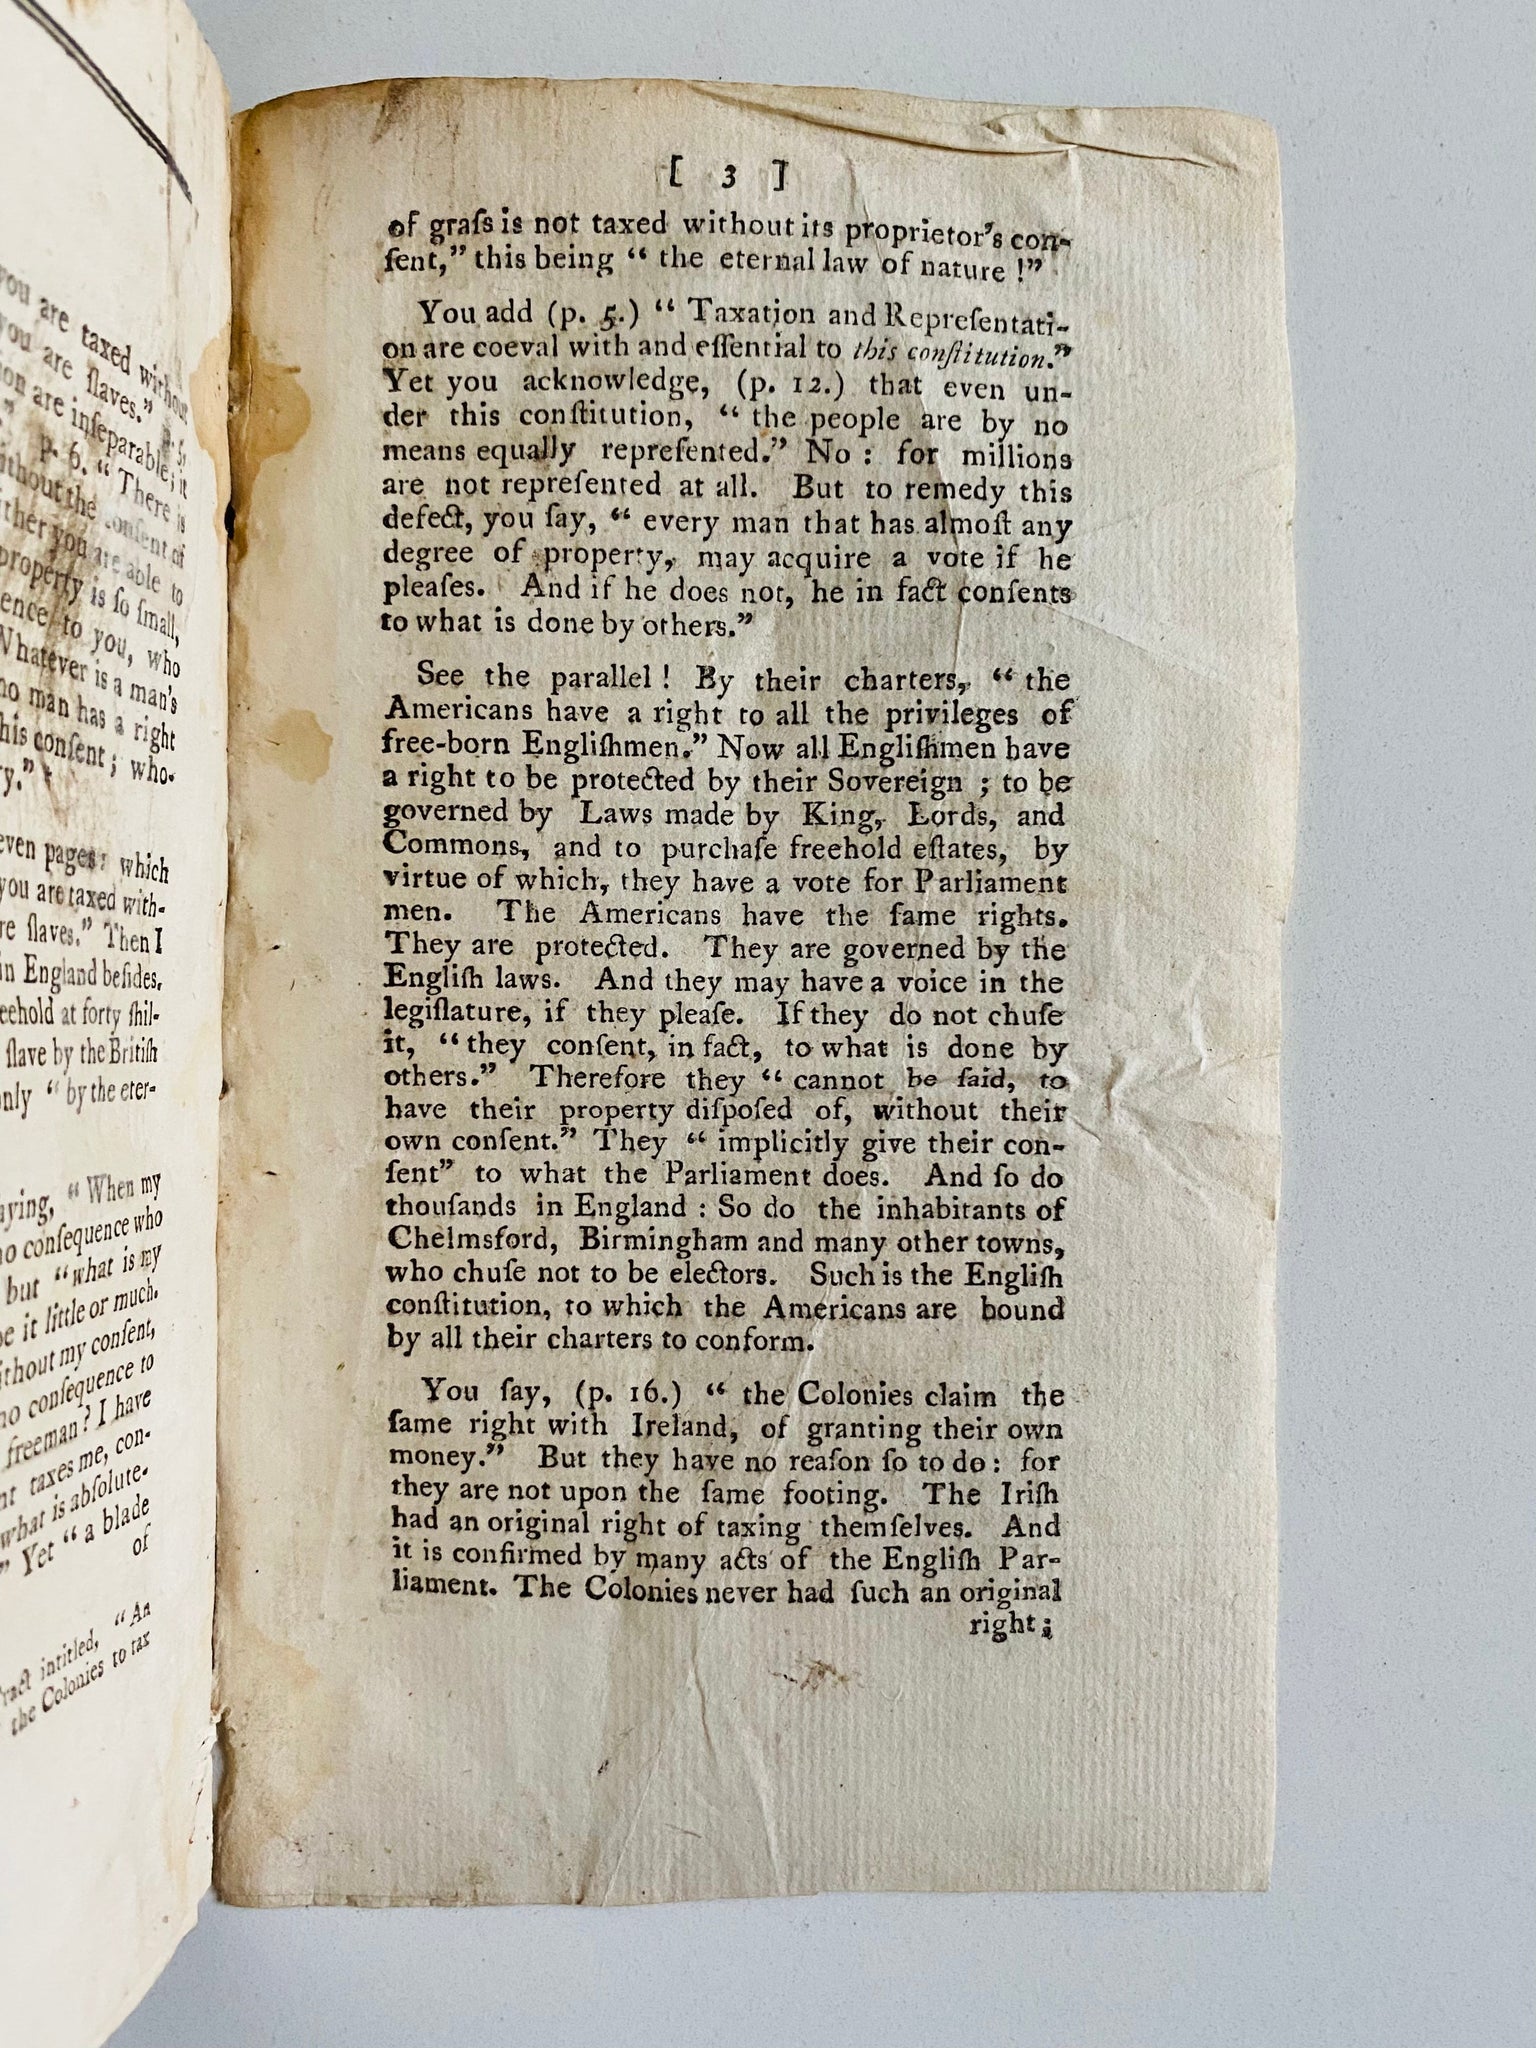 you are taxed without
you are ſlaves."
ion are inſeparable; it
p. 6. "There is
ithout the conſent of
ther you are able to
property is ſo ſmall,
ence to you, who
Whatever is a man's
no man has a right
his conſent; who-
y."
even pages: which
you are taxed with-
re ſlaves." Then I
in England beſides.
eehold at forty ſhil-
ſlave by the Britiſh
only "by the eter-
aying, "When my
no conſequence who
but "what is my
be it little or much.
ithout my conſent,
no conſequence to
freeman? I have
nt taxes me, con-
what is abſolute-
" Yet "a blade
of
ract intitled, "An
the Colonies to tax
[ 3 ]
of graſs is not taxed without its proprietor's con-
ſent," this being "the eternal law of nature!"
You add (p. 5.) "Taxation and Repreſentati-
on are coeval with and eſſential to this conſtitution."
Yet you acknowledge, (p. 12.) that even un-
der this conſtitution, "the people are by no
means equally repreſented." No: for millions
are not repreſented at all. But to remedy this
defect, you ſay, "every man that has almoſt any
degree of property, may acquire a vote if he
pleaſes. And if he does not, he in fact conſents
to what is done by others."
See the parallel! By their charters, "the
Americans have a right to all the privileges of
free-born Engliſhmen." Now all Engliſhmen have
a right to be protected by their Sovereign; to be
governed by Laws made by King, Lords, and
Commons, and to purchaſe freehold eſtates, by
virtue of which, they have a vote for Parliament
men. The Americans have the ſame rights.
They are protected. They are governed by the
Engliſh laws. And they may have a voice in the
legiſlature, if they pleaſe. If they do not chuſe
it, "they conſent, in fact, to what is done by
others." Therefore they "cannot be ſaid, to
have their property diſpoſed of, without their
own conſent." They "implicitly give their con-
ſent" to what the Parliament does. And ſo do
thouſands in England: So do the inhabitants of
Chelmsford, Birmingham and many other towns,
who chuſe not to be electors. Such is the Engliſh
conſtitution, to which the Americans are bound
by all their charters to conform.
You ſay, (p. 16.) "the Colonies claim the
ſame right with Ireland, of granting their own
money." But they have no reaſon ſo to do: for
they are not upon the ſame footing. The Iriſh
had an original right of taxing themſelves. And
it is confirmed by many acts of the Engliſh Par-
liament. The Colonies never had ſuch an original
right;